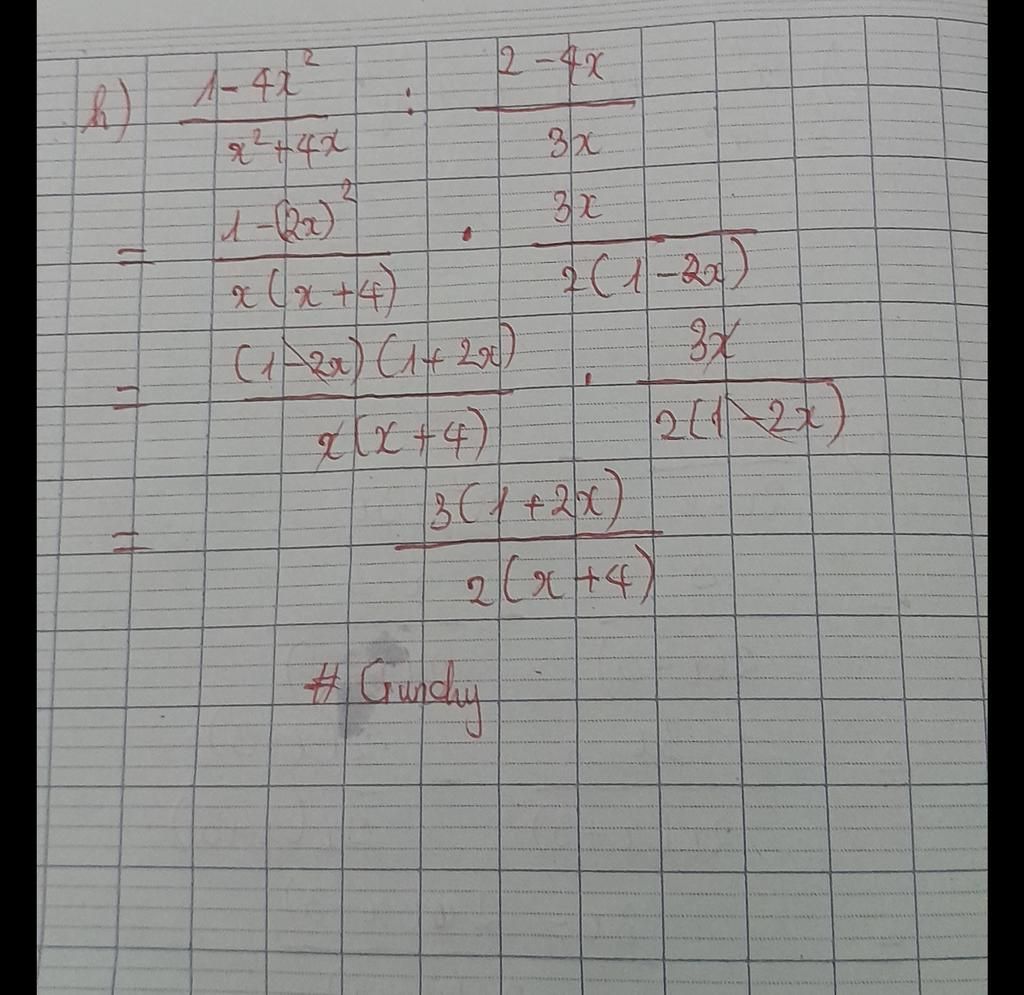 h) \frac{1-4x^2}{x^2+4x} : \frac{2-4x}{3x}
= \frac{1-(2x)^2}{x(x+4)} . \frac{3x}{2(1-2x)}
= \frac{(1-2x)(1+2x)}{x(x+4)} . \frac{3x}{2(1-2x)}
= \frac{3(1+2x)}{2(x+4)}